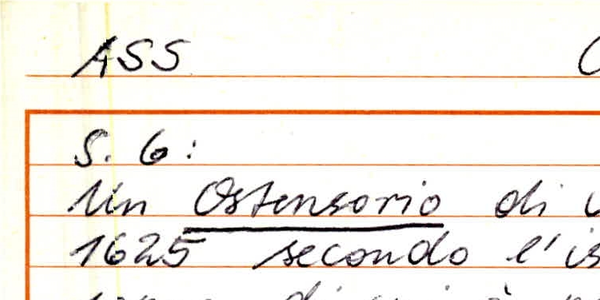 ASS
S. 6:
Un Ostensorio di
1625 secondo l'is